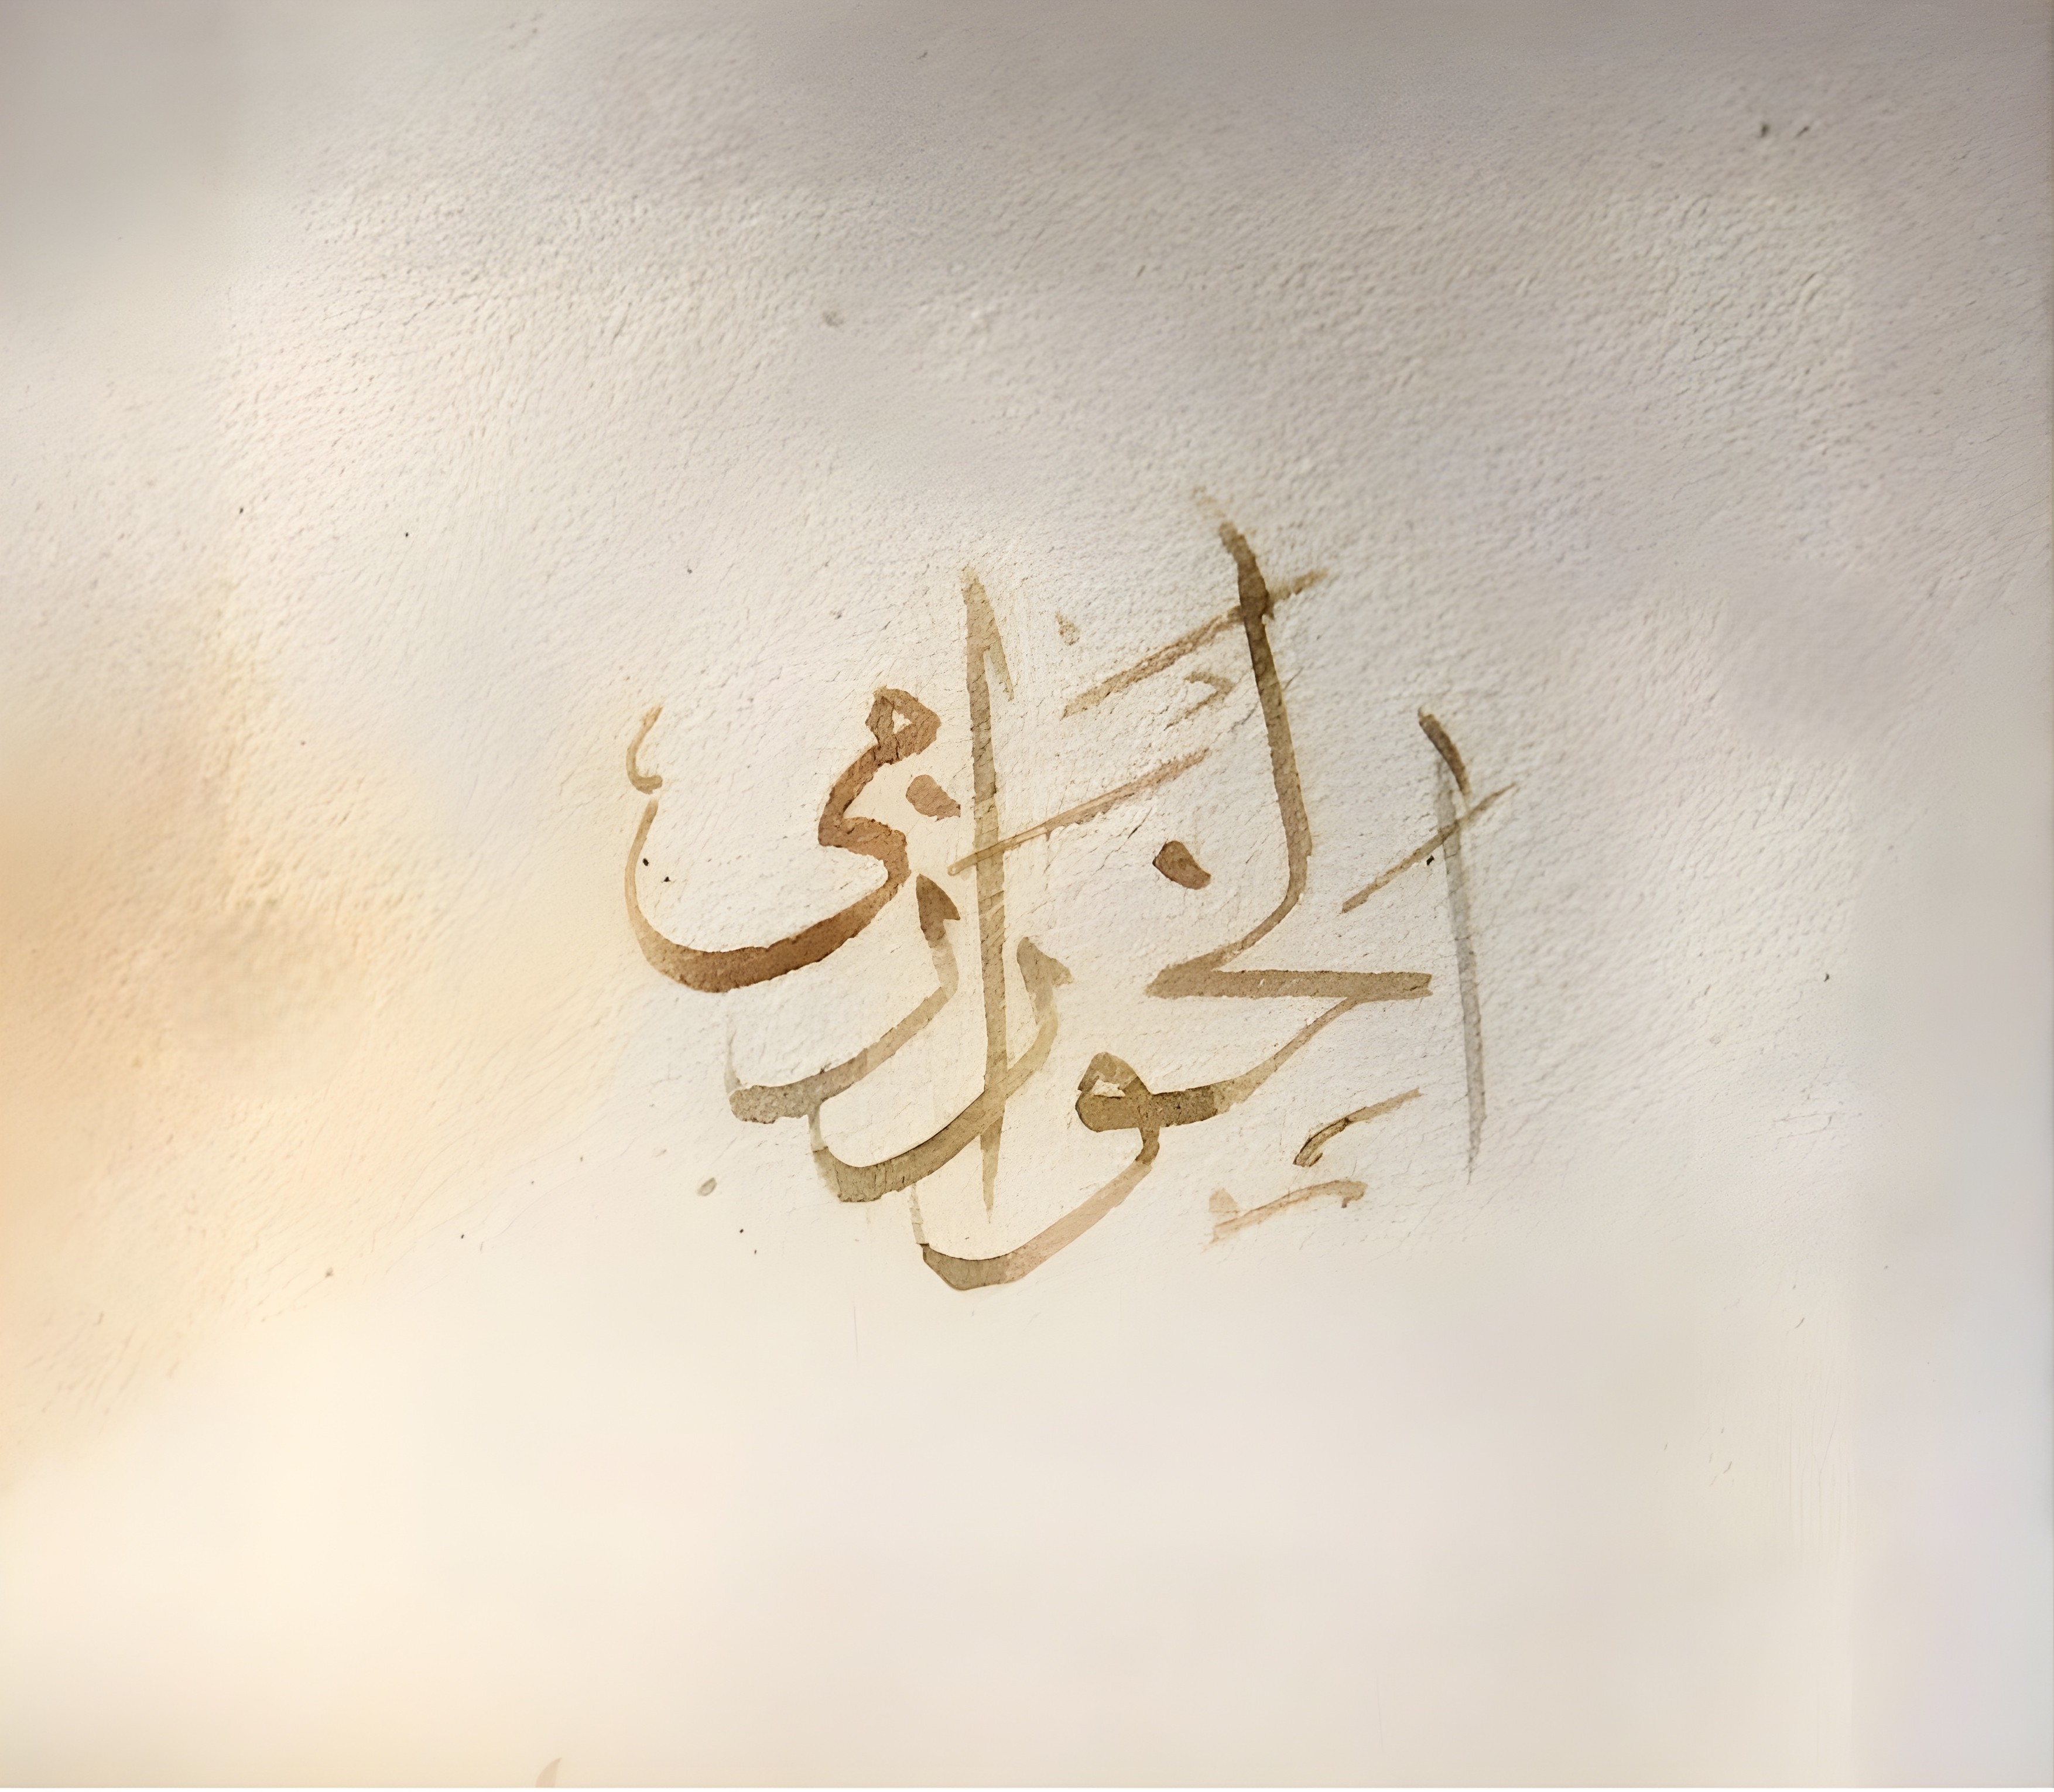 الخوارزمي